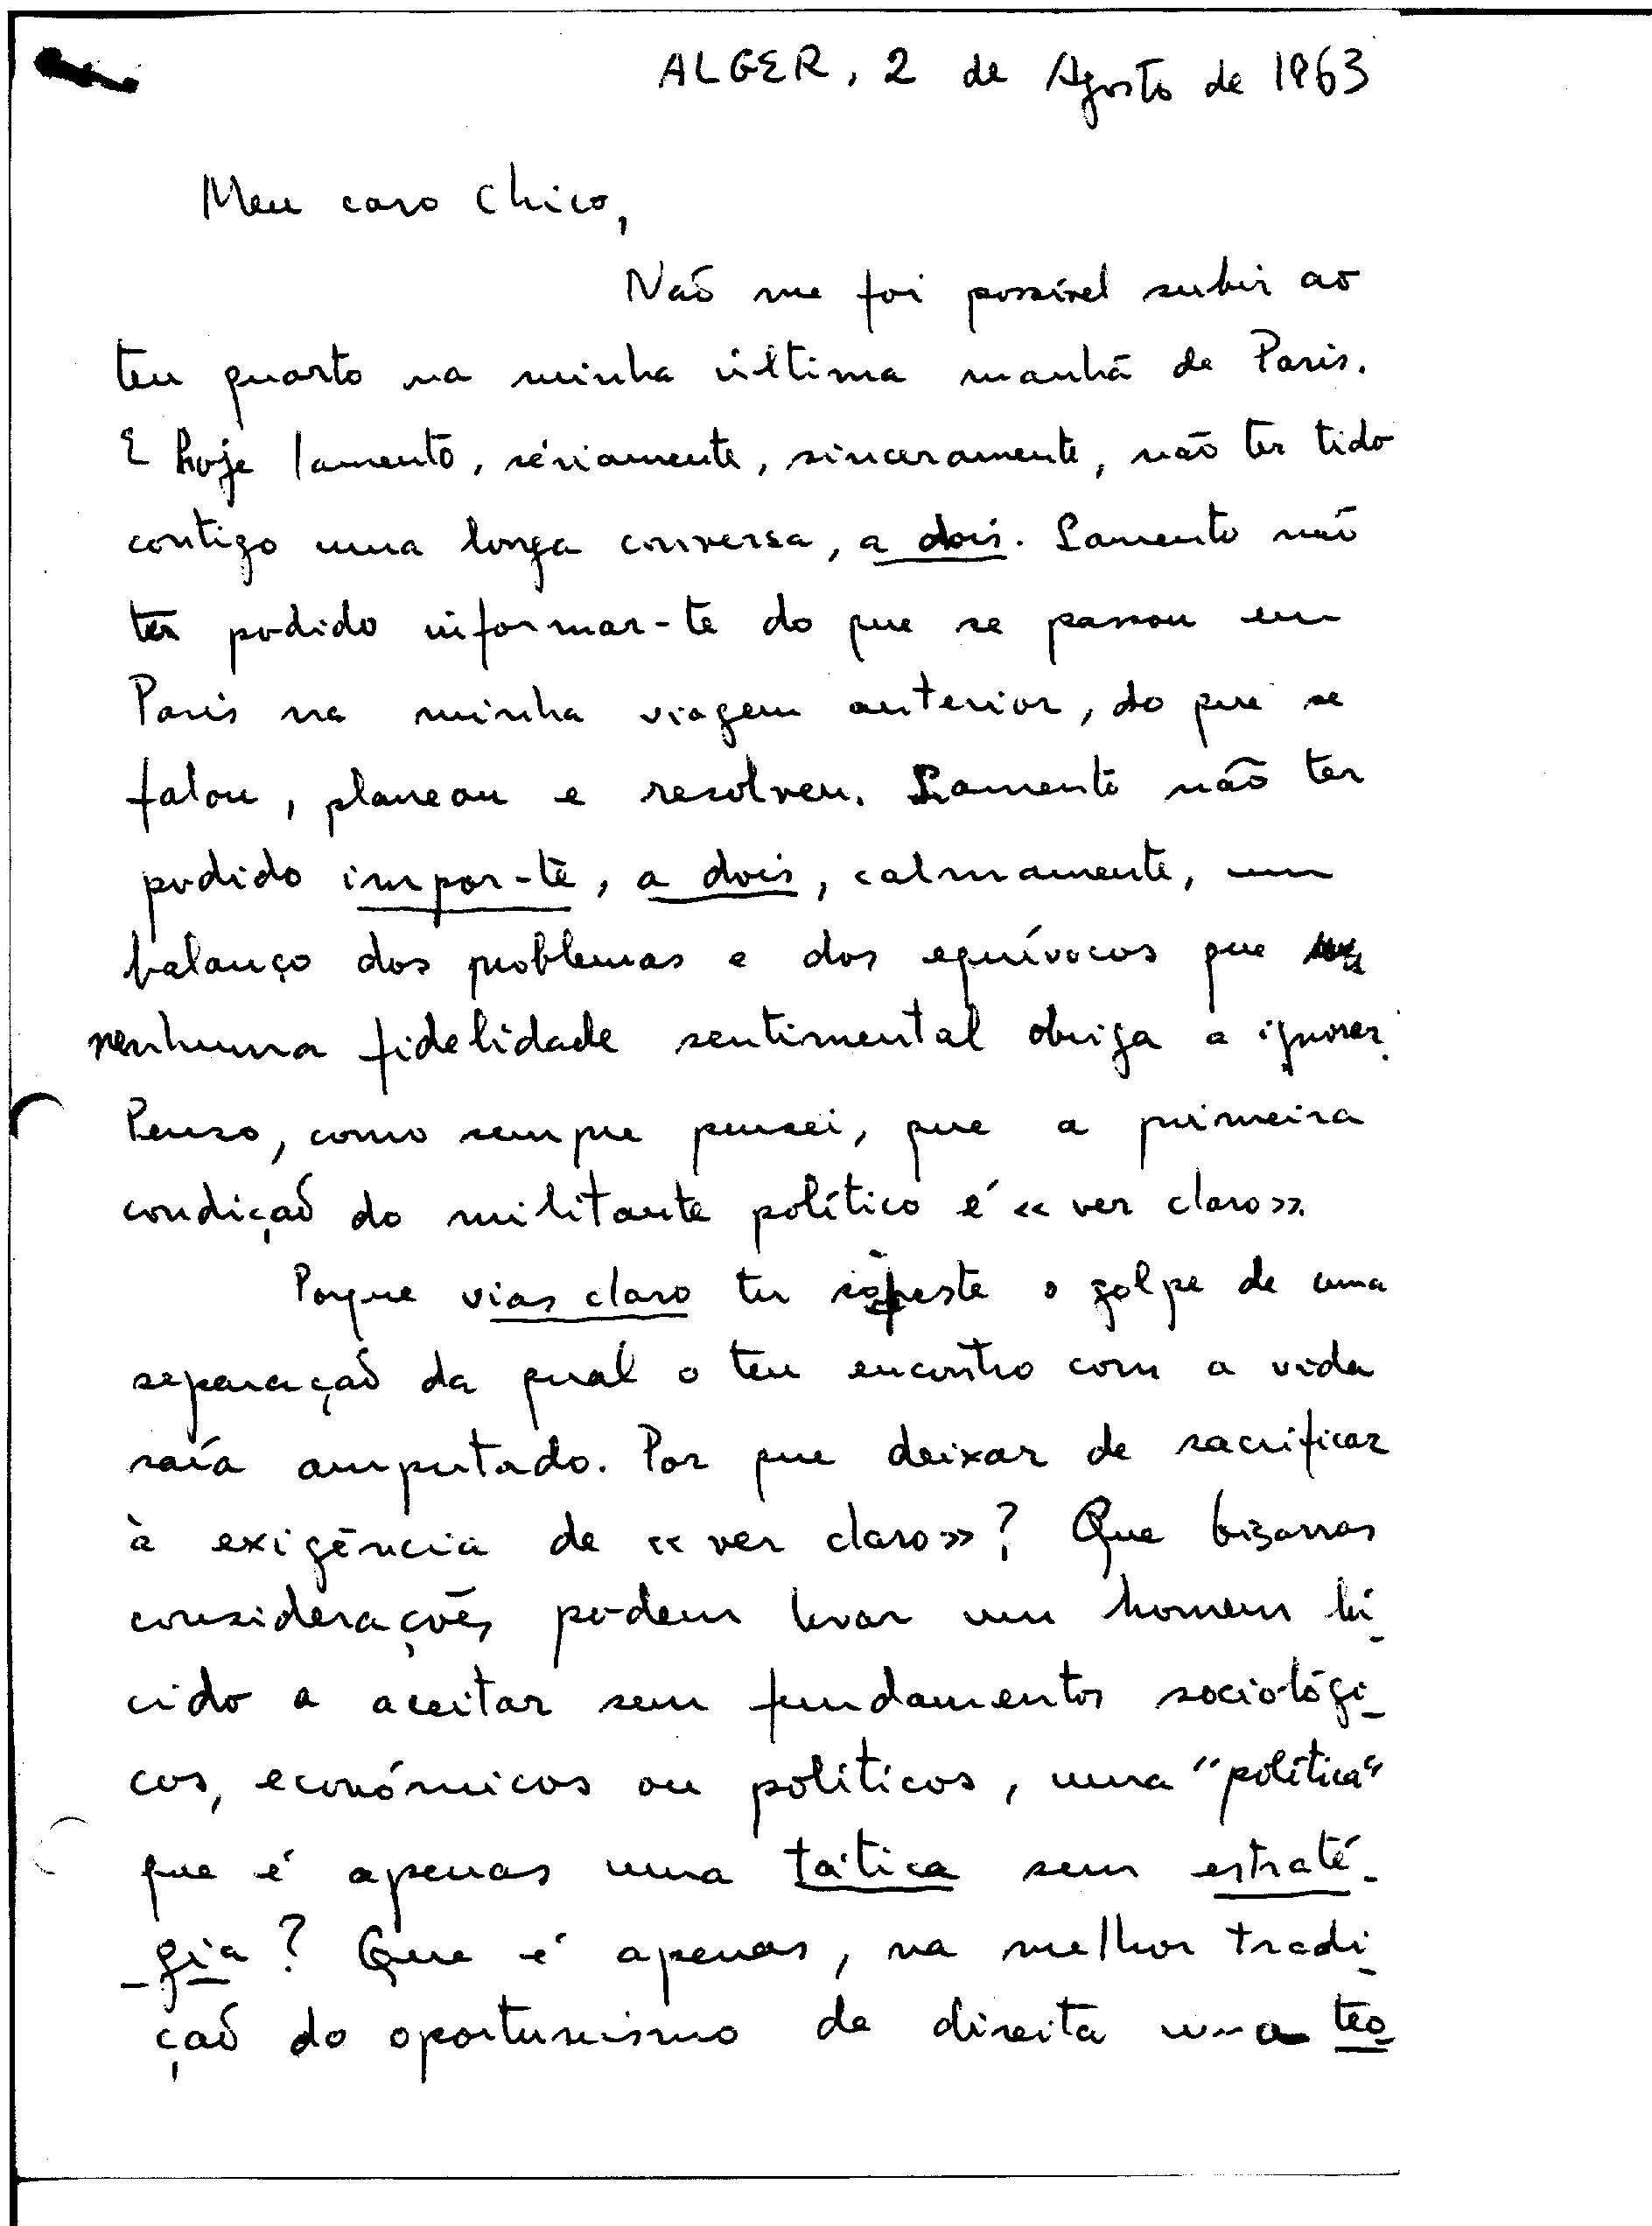 ALGER, 2 de Agosto de 1963
Meu caro Chico,
Não me foi possível subir ao
teu quarto na minha última manhã de Paris.
E hoje lamento, sériamente, sinceramente, não ter tido
contigo uma longa conversa, a dois. Lamento não
ter podido informar-te do que se passou em
Paris na minha viagem anterior, do que se
falou, planeou e resolveu. Lamento não ter
podido impor-te, a dois, calmamente, um
balanço dos problemas e dos equívocos que
nenhuma fidelidade sentimental obriga a ignorar.
Penso, como sempre pensei, que a primeira
condição do militante político é « ver claro ».
Porque vias claro tu o golpe de uma
separação da qual o teu encontro com a vida
saía amputado. Por que deixar de sacrificar
à exigência de « ver claro » ? Que bizarras
considerações podem levar um homem lú-
cido a aceitar sem fundamentos sociológi-
cos, económicos ou políticos, uma "política"
que é apenas uma tática sem estraté-
-gia ? Que é apenas, na melhor tradi-
ção do oportunismo de direita uma teo-